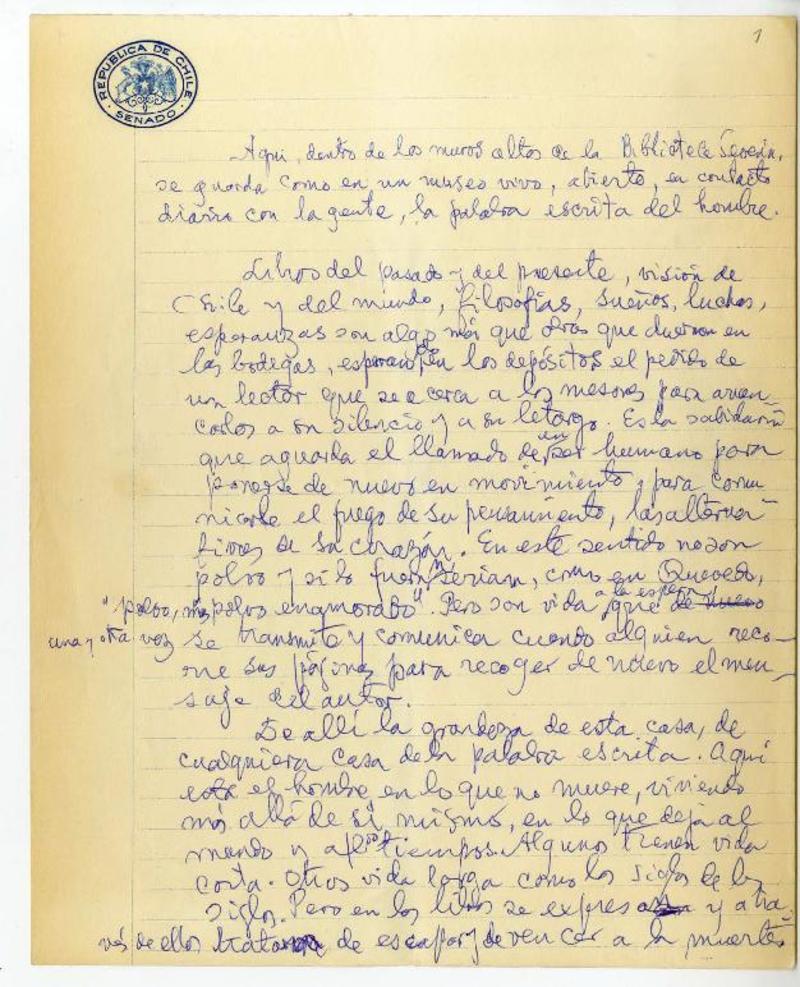 1
REPUBLICA DE CHILE
SENADO
Aqui, dentro de los muros altos de la Biblioteca
se guarda como en un museo vivo, abierto, en contacto
diario con la gente, la palabra escrita del hombre.
Libros del pasado y del presente, visión de
Chile y del mundo, filosofías, sueños, luchas,
esperanzas son algo más que obras que duermen en
las bodegas, esperando en los depósitos el pedido de
un lector que se acerca a los mesones para arran-
carlos a su silencio y a su letargo. Es la sabiduría
que aguarda el llamado de un ser humano para
ponerse de nuevo en movimiento y para comu
nicarle el fuego de su pensamiento, las alterna-
tivas de su corazón. En este sentido no son
polvo y si lo fueran serían, como en Quevedo,
"polvo, más polvo enamorado". Pero son vida a la espera, que de nuevo
una y otra vez se transmite y comunica cuando alguien reco-
rre sus páginas para recoger de nuevo el men-
saje del autor.
De allí la grandeza de esta casa, de
cualquiera casa de la palabra escrita. Aquí
está el hombre en lo que no muere, viviendo
más allá de sí mismo, en lo que deja al
mundo y a los tiempos. Algunos tienen vida
corta. Otros vida larga como los siglos de los
siglos. Pero en los libros se expresa y a tra-
vés de ellos trata de escapar y de vencer a la muerte.